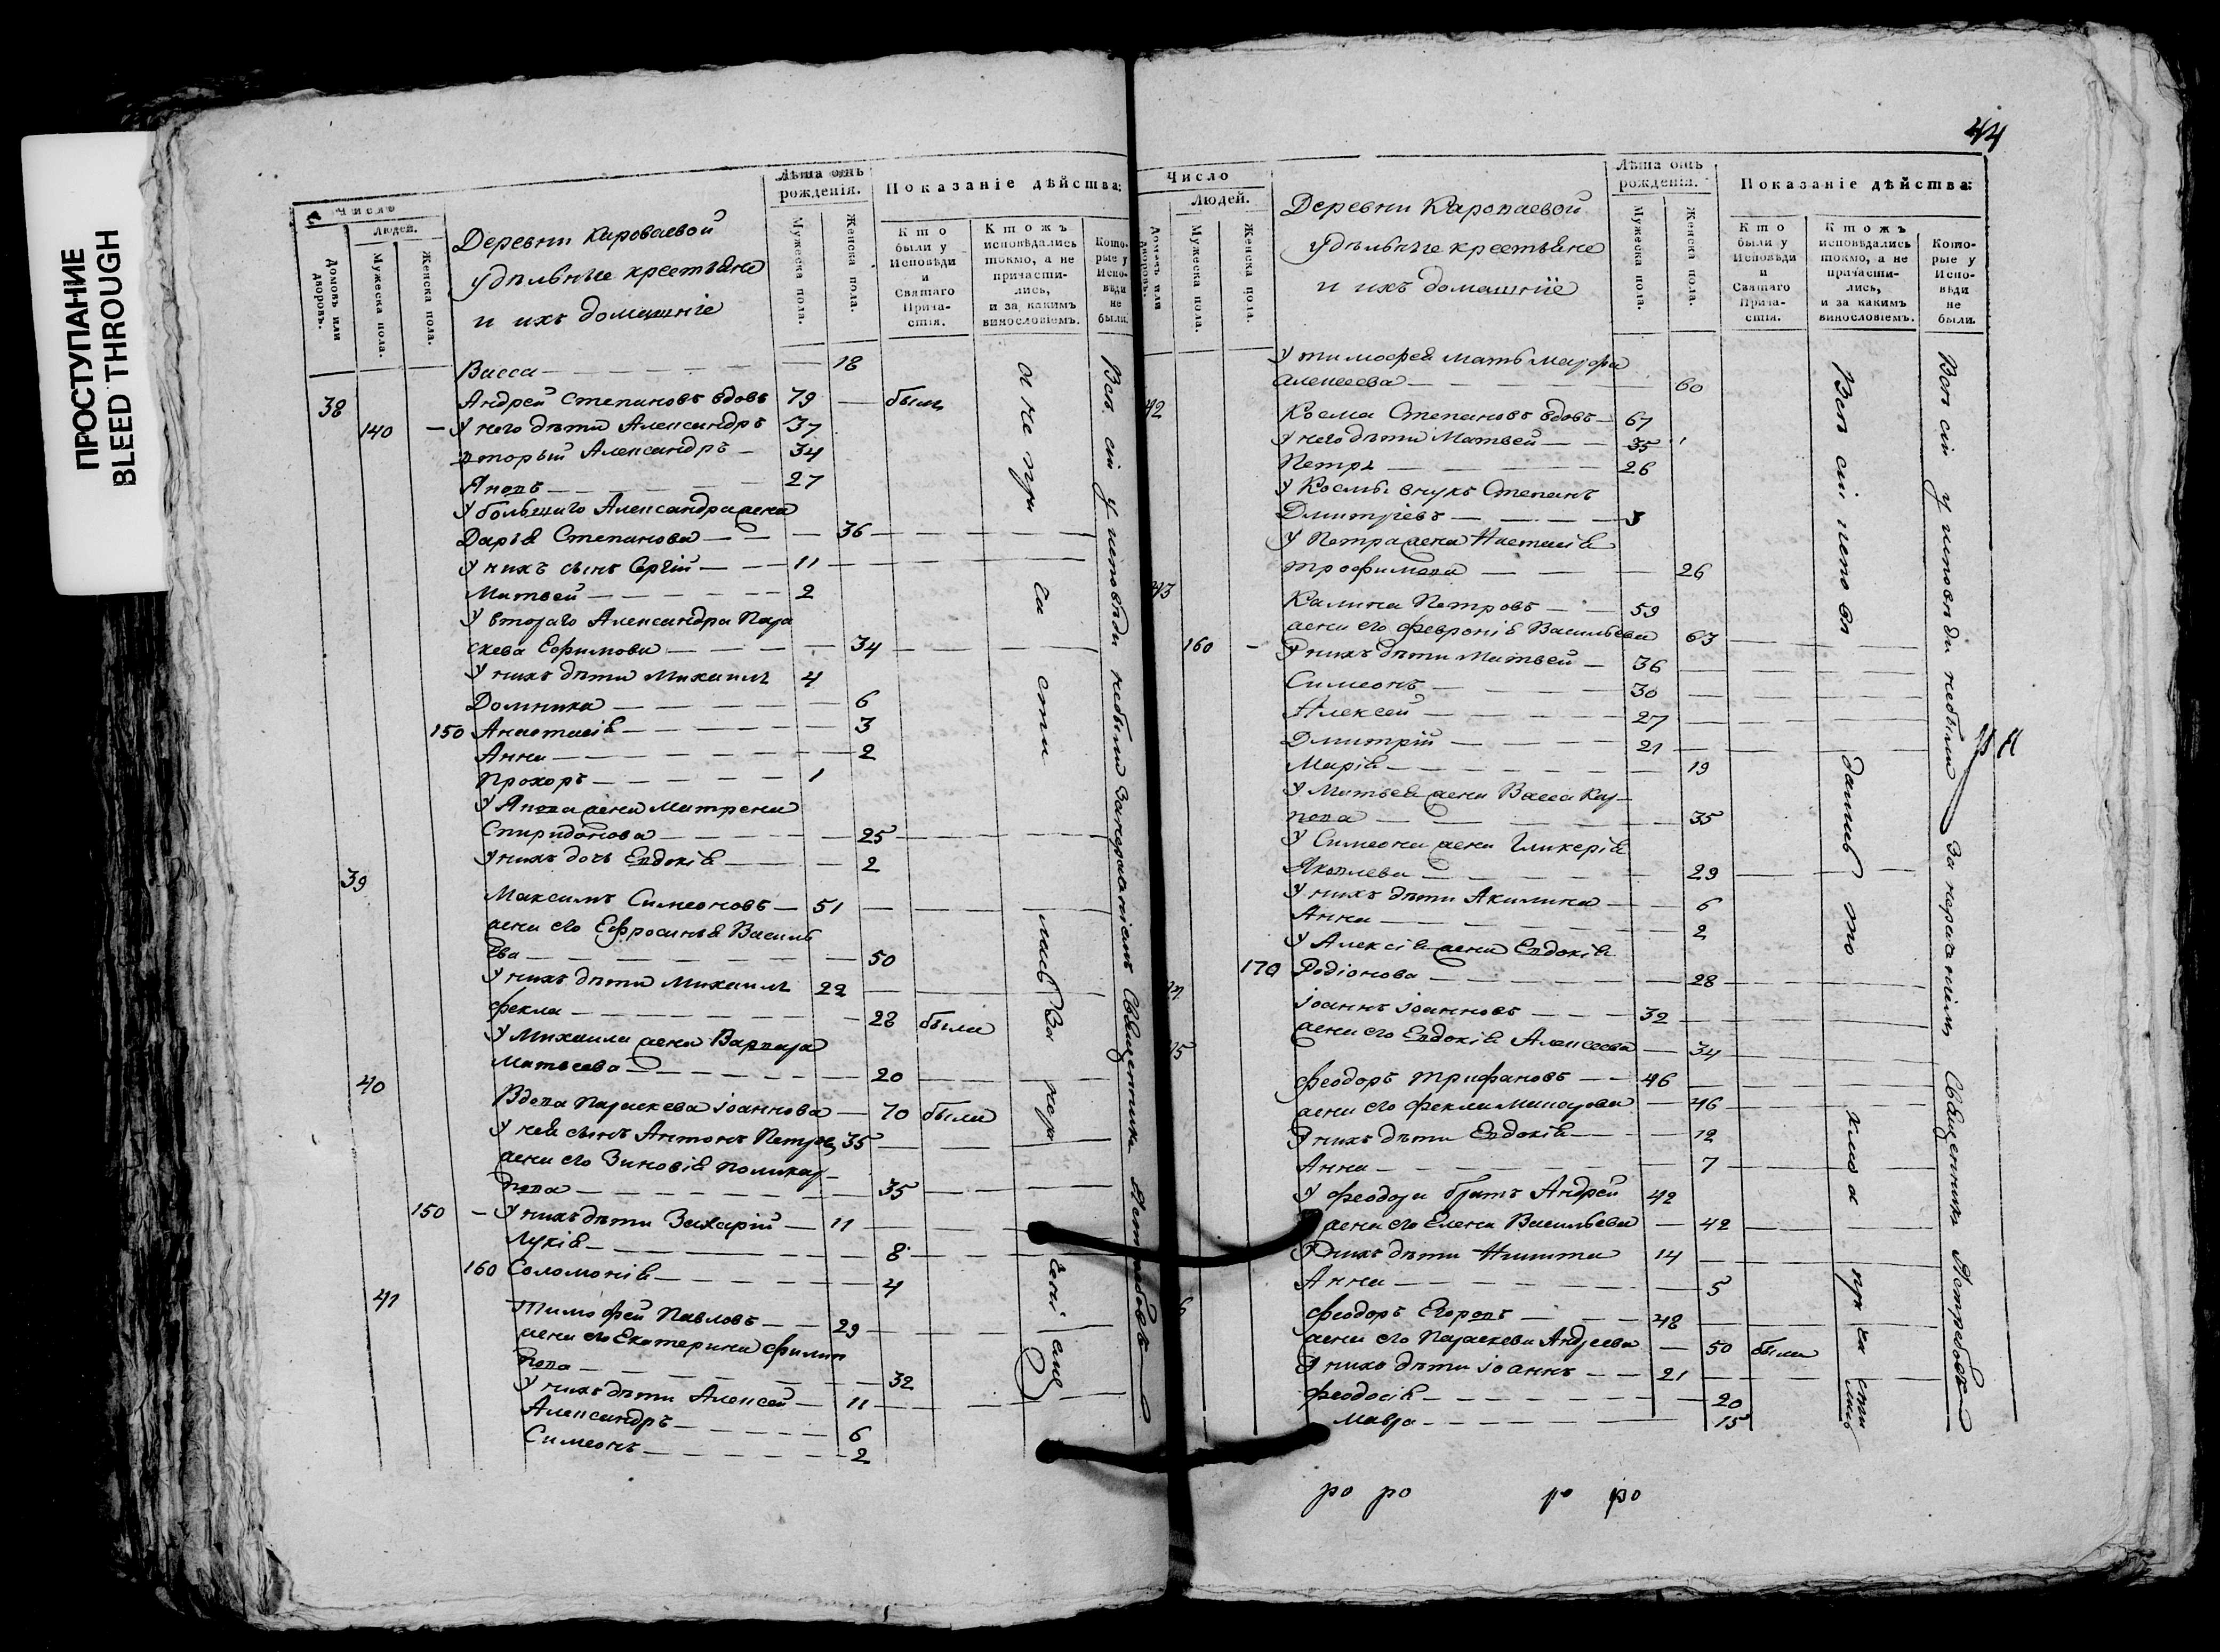 ПРОСТУПАНИЕ
BLEED THROUGH
Число
Людей.
Домовъ или дворовъ.
Мужеска пола.
Женска пола.
Деревни Кароваевой
удѣльные крестьяне
и ихъ домашніе
Лѣта отъ рожденія.
Мужеска пола.
Женска пола.
Показаніе дѣйства:
Кто были у Исповѣди и Святаго Причастія.
Ктожъ исповѣдались токмо, а не причастились, и за какимъ винословіемъ.
Которые у Исповѣди не были.
Васса 18
38 Андрей Степановъ вдовъ 79 былъ
140 У него дѣти Александръ 37
вторый Александръ 34
Яковъ 27
У большаго Александра жена
Дарья Степанова 36
У нихъ сынъ Сергій 11
Матвей 2
У втораго Александра Пара
скева Ефимова 34
У нихъ дѣти Михаилъ 4
Домника 6
150 Анастасія 3
Анна 2
Прохоръ 1
У Якова жена Матрена
Спиридонова 25
У нихъ дочь Евдокія 2
39 Максимъ Симеоновъ 51
жена его Ефросинья Василь
ева 50
У нихъ дѣти Михаилъ 22
Фекла 28 была
У Михаила жена Варвара
Матвеева 20
40 Вдова Параскева Іоаннова 70 была
У нея сынъ Антонъ Петровъ 35
жена его Зиновія Поликар
пова 35
150 У нихъ дѣти Захарій 11
Лукія 8
160 Соломонія 4
41 Тимофей Павловъ 29
жена его Екатерина Филип
пова 32
У нихъ дѣти Алексей 11
Александръ 6
Симеонъ 2
Всѣ сіи у исповѣди небыли за нераченіемъ Священникъ Ястребовъ
44
Число
Людей.
Домовъ или дворовъ.
Мужеска пола.
Женска пола.
Деревни Кароваевой
удѣльные крестьяне
и ихъ домашніе
Лѣта отъ рожденія.
Мужеска пола.
Женска пола.
Показаніе дѣйства:
Кто были у Исповѣди и Святаго Причастія.
Ктожъ исповѣдались токмо, а не причастились, и за какимъ винословіемъ.
Которые у Исповѣди не были.
У Тимофея мать Марфа
Алексеева 60
42 Косма Степановъ вдовъ 67
У него дѣти Матвей 35
Петръ 26
У Космы внукъ Степанъ
Дмитріевъ 3
У Петра жена Настасія
Трофимова 26
43 Калина Петровъ 59
жена его Февронія Васильева 63
160 У нихъ дѣти Матвей 36
Симеонъ 30
Алексей 27
Дмитрій 21
Марія 19
У Матвея жена Васса Кар
пова 35
У Симеона жена Гликерія
Яковлева 29
У нихъ дѣти Акилина 6
Анна 2
У Алексія жена Евдокія
170 Родіонова 28
Іоаннъ Іоанновъ 32
жена его Евдокія Алексеева 34
Феодоръ Трифановъ 46
жена его Фекла 46
У нихъ дѣти Евдокія 12
Анна 7
У Феодора братъ Андрей 42
жена его Елена Васильева 42
У нихъ дѣти Никита 14
Анна 5
Феодоръ Егоровъ 48
жена его Параскева Андреева 50 была
У нихъ дѣти Іоаннъ 21
Феодосія 20
Мавра 15
Всѣ сіи у исповѣди небыли за нераченіемъ Священникъ Ястребовъ
ро ро ро ро